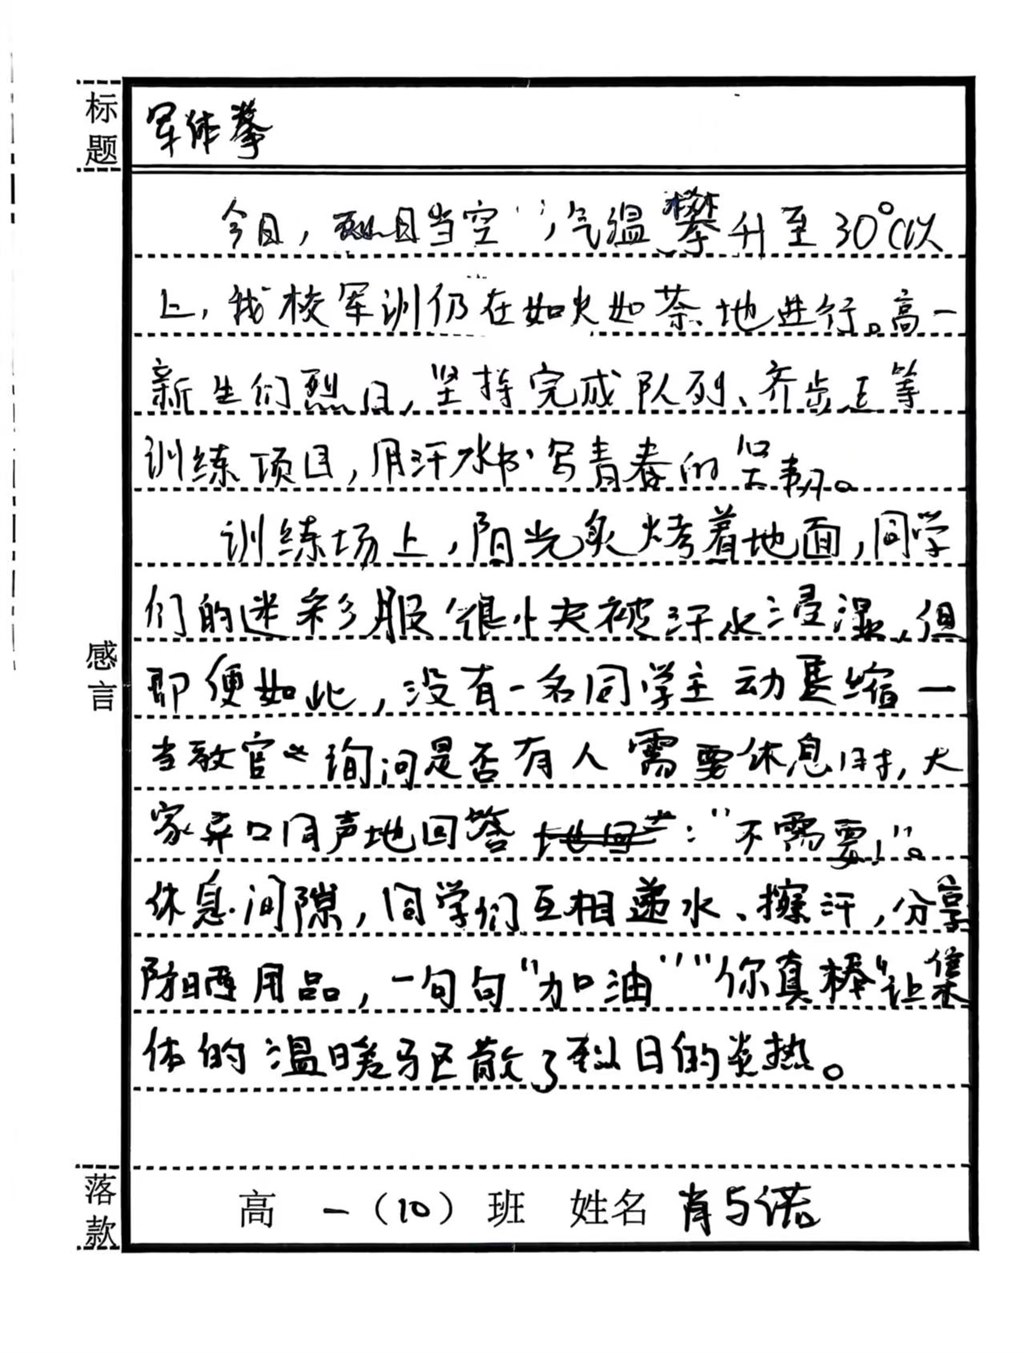 标题
军体拳
今日，烈日当空，气温攀升至30℃以
上，我校军训仍在如火如荼地进行。高一
新生们烈日，坚持完成队列、齐步正等
训练项目，用汗水书写青春的坚韧。
训练场上，阳光炙烤着地面，同学
们的迷彩服很快被汗水浸湿，但
即便如此，没有一名同学主动退缩一
当教官 询问是否有人需要休息时，大
家异口同声地回答：“不需要！”。
休息间隙，同学们互相递水、擦汗，分享
防晒用品，一句句“加油”“你真棒”让集
体的温暖驱散了烈日的炎热。
感言
落款
高一（10）班 姓名 肖与诺